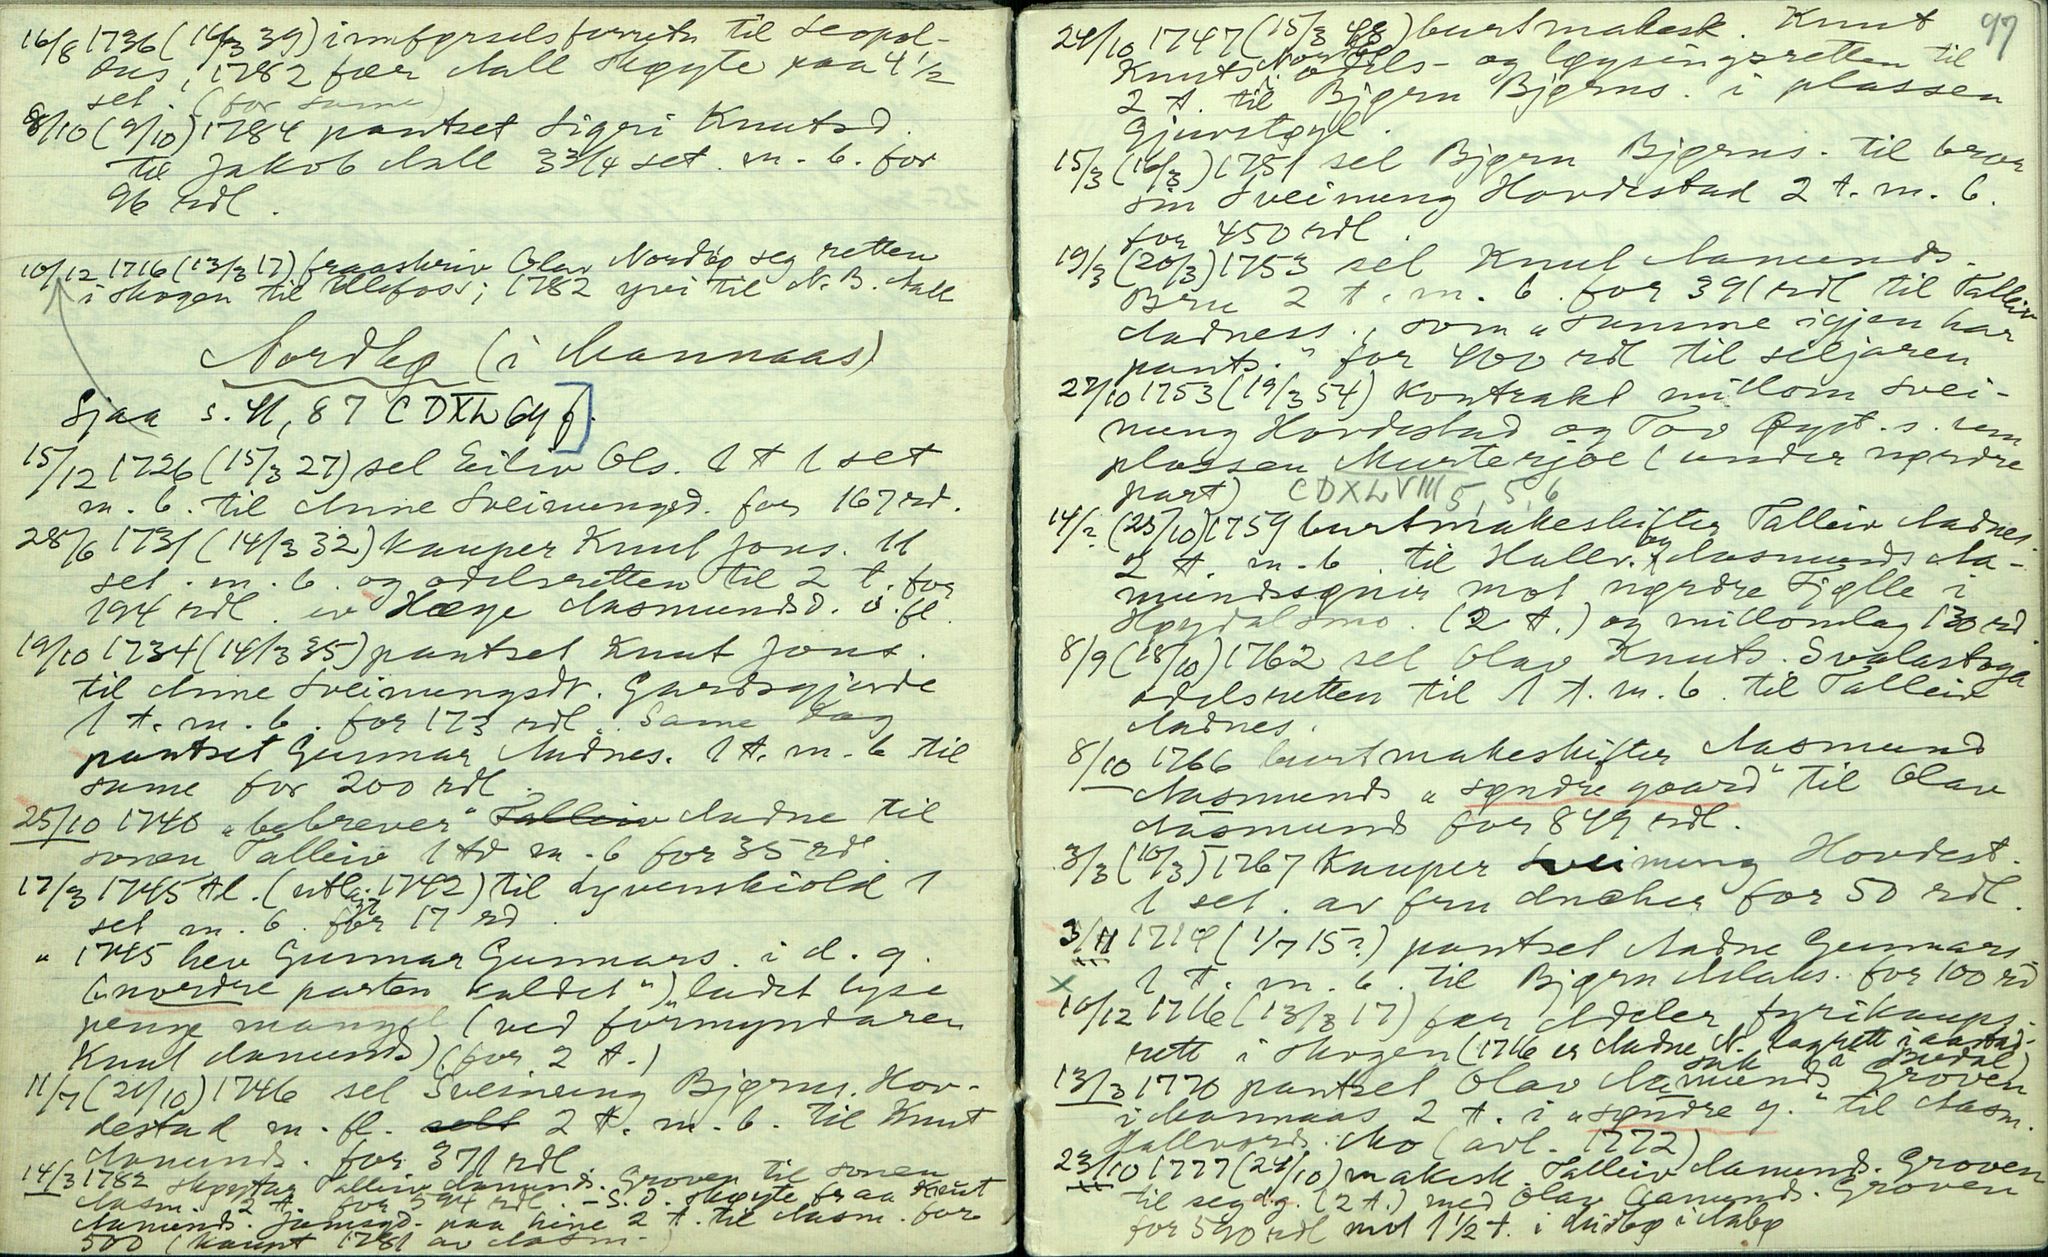 16/8 1736 (14/3 39) innførselsforretn til Leopol-
dus, 1782 fær Aall skøyte paa 4 1/2
set. (for same)
8/10 (9/10) 1784 pantset Sigri Knutsd.
til Jakob Aall 3 3/4 set. m. b. for
96 rdl.
10/12 1716 (13/3 17) fraaskriv Olav Nordbø seg retten
i skogen til Ulefoss; 1782 yvi til N. B. Aall
Nordbø (i Mannaas)
Sjaa s. 41, 87 CDXL 64 f.
15/12 1726 (15/3 27) sel Eiliv Ols. 1 t 1 set
m. b. til Anne Sveinungsd. for 167 rd.
28/6 1731 (14/3 32) kauper Knut Jons. 11
set. m. b. og odelsretten til 2 t. for
194 rdl. av Hæge Aasmundsd. o. fl.
19/10 1734 (14/3 35) pantset Knut Jons.
til Anne Sveinungsdr. Gardsgjerde
1 t. m. b. for 173 rdl. Same dag
pantset Gunnar Aadnes. 1 t. m. b til
same for 200 rdl.
25/10 1740 "bebrever" Talleiv Aadne til
sonen Talleiv 1 td m. b for 35 rdl.
17/3 1745 tl. (utl. 1742) til Løvenskiold 1
set m. b. for 17 rd.
" 1745 hev Gunnar Gunnars. i d. g.
("nordre parten kaldet") ladet lyse
penge mangel (ved formyndaren
Knut Aamunds) (for 2 t.)
11/7 (21/10) 1746 sel Sveinung Bjørns. Hov-
destad m. fl. selt 2 t. m. b. til Knut
Aamunds. for 371 rdl
14/3 1782 skøytar Talleiv Aamunds. Groven til sonen
Aasm. 2 t. for 594 rdl. - S. d. skøyte fraa Knut
Aamunds. Jamsgd. paa hine 2 t. til Aasm. for
500 (kaupt 1781 av Aasm.)
97
24/10 1747 (15/3 48) burtmakesk. Knut
Knuts. Nordbø odels- og løysingsretten til
2 t. til Bjørn Bjørns. i plassen
Gjuvstøyl.
15/3 (16/3) 1751 sel Bjørn Bjørns. til bror
sin Sveinung Hovdestad 2 t. m. b.
for 450 rdl.
19/3 (20/3) 1753 sel Knut Aamunds.
Bru 2 t. m. b. for 391 rdl til Talleiv
Aadness., som "samme igjen har
pants." for 400 rdl til seljaren
27/10 1753 (19/3 54) Kontrakt millom Svei-
nung Hovdestad og Tov Øyst. s. um
plassen Murterjoe (under nørdre
part) CDXLVIII 5, 5, 6
14/? (25/10) 1759 burtmakeskifter Talleiv Aadnes.
2 t. m. b. til Hallv. og Aasmunds Aa-
mundssønir mot nørdre Fjølle i
Høydalsmo. (2 t.) og millomlag 130 rd.
8/9 (18/10) 1762 sel Olav Knuts. Svalastoga
odelsretten til 1 t. m. b. til Talleiv
Aadnes.
8/10 1766 burtmakeskifter Aasmund
Aasmunds "søndre gaard" til Olav
Aasmunds for 849 rdl.
3/3 (10/3) 1767 kauper Sveinung Hovdest.
1 set. av fru Ancher for 50 rdl.
3/11 1714 (1/7 15?) pantset Aadne Gunnars.
x 1 t. m. b. til Bjørn Aslaks. for 100 rd
10/12 1716 (13/3 17) fær Adeler fyrikaups-
rett i skogen (1716 er Aadne N. lagrett i aastad-
sak a Bredal)
13/3 1770 pantset Olav Aamunds Groven
i Mannaas 2 t. i "søndre g." til Aasm.
Hallvords. Mo (avl. 1772)
23/10 1777 (24/10) makesk. Talleiv Aamunds. Groven
til seg d. g. (2 t.) med Olav Aamunds. Groven
for 590 rdl mot 1 1/2 t. i Midbø i Aabø